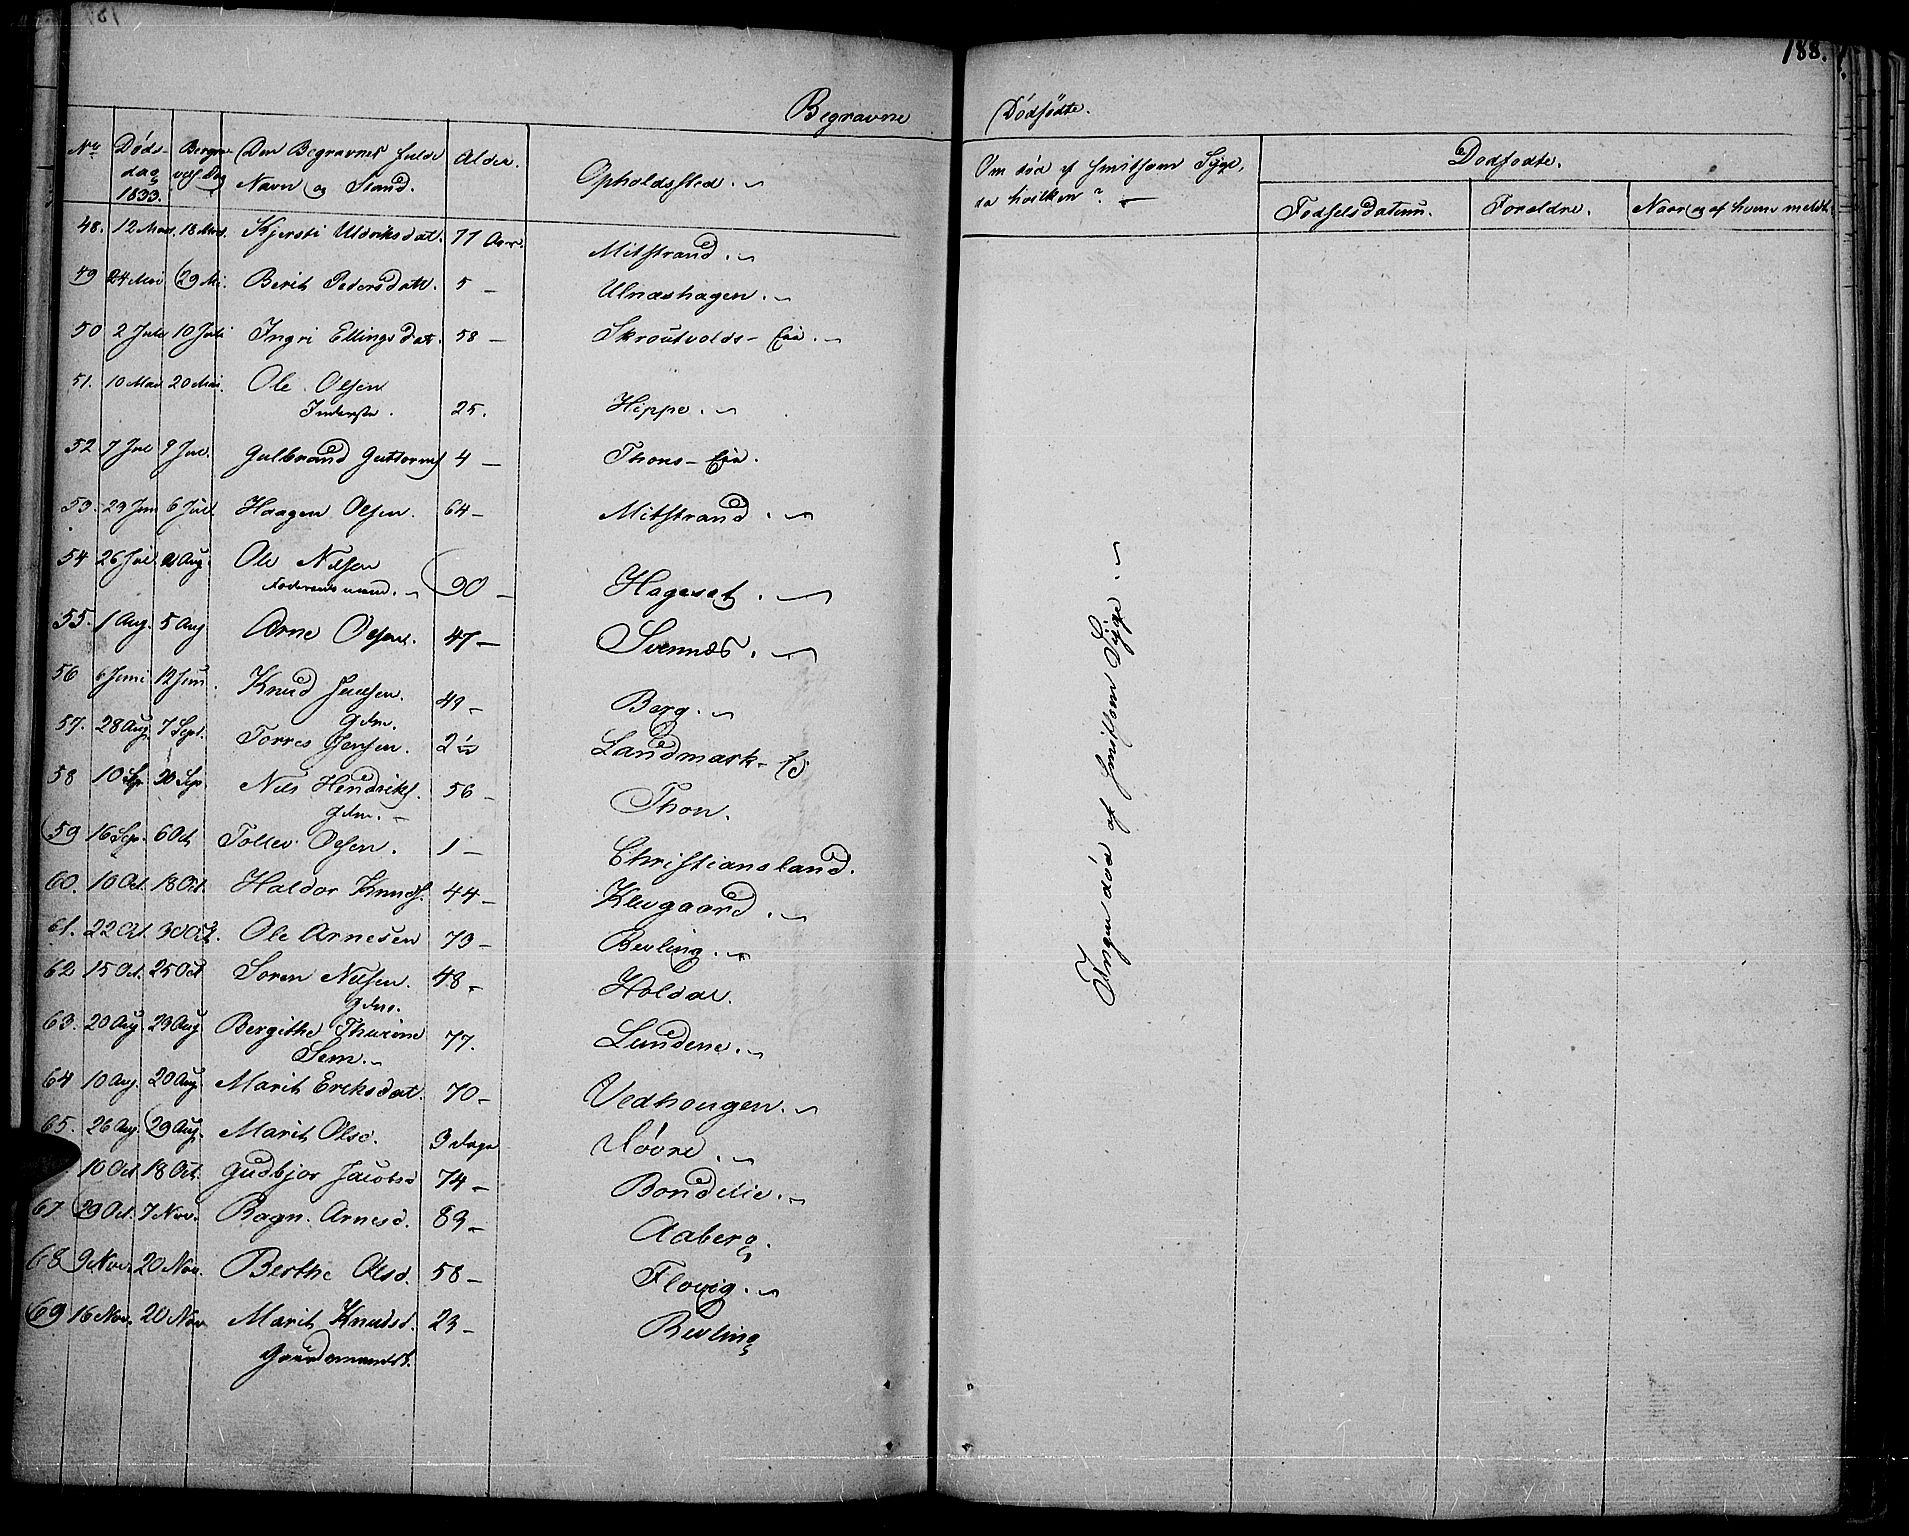 188.
Begravne
Dødfødte.
No Døds-dag 1833. Begra-vels. Dag Den Begravnes fulde Navn og Stand. Alder. Opholdssted.
Om død af smitsom Syge, da hvilken?
Dødfødte.
Fødselsdatum. Forældre. Naar og af hvem meldt.
48. 12 Mai 18 Mai. Kjersti Uldriksdat. 77 Aar. Mitstrand.
49 24 Mai 29 Mai. Berit Pedersdatt. 5 — Ulnæshagen.
50 2 Juli 10 Juli Ingri Ellingsdat. 58 — Skroutvolds-Eie.
51. 10 Mai 20 Mai. Ole Olsen
Inderste. 25. Hippe.
52 7 Jul 9 Jul. Gulbrand Guttorms. 4 — Thons-Eie.
53. 29 Jun 6 Jul Haagen Olsen. 64 — Mitstrand.
54 26 Jul. 2 Aug. Ole Nilsen
Foderaadsmand. 90 — Hageset.
55. 1 Aug. 5 Aug Arne Olsen. 47 — Svennæs.
56 6 Juni 12 Juni. Knud
Gdm. 49 — Berg.
57. 28 Aug. 7 Sept. Torres Jensen. 2 Landmark-
58 10 Sep. 20 Sep. Nils Hendriks.
Gdm. 56 — Thon.
59 16 Sep. 6 Oct Tollev Olsen. 1 — Christiansland.
60. 10 Oct. 18 Oct. Haldor Knuds. 44 — Klevgaard.
61. 22 Oct. 30 Oct. Ole Arnesen 73 — Revling.
62 15 Oct. 25 Oct Søren Nilsen.
Gdm. 48 — Holdal.
63. 20 Aug. 29 Aug Bergithe Thurine
Sem. 77. Lundene.
64 10 Aug. 20 Aug Marit Eriksdat. 70 — Vedhougen.
65. 26 Aug. 29 Aug. Marit Olsd. 3 dage Møvre.
10 Oct 18 Oct. Gudbjør Jacobsd 74 — Bondelie.
67 29 Oct. 7 Nov. Ragn. Arnesd. 89 — Aaberg.
68 9 Nov. 20 Nov. Berthe Olsd. 58 — Flovig.
69 16 Nov. 20 Nov Marit Knudsd. 23 — Revling
Gaardmandsk.
Ingen død af smitsom Syge.